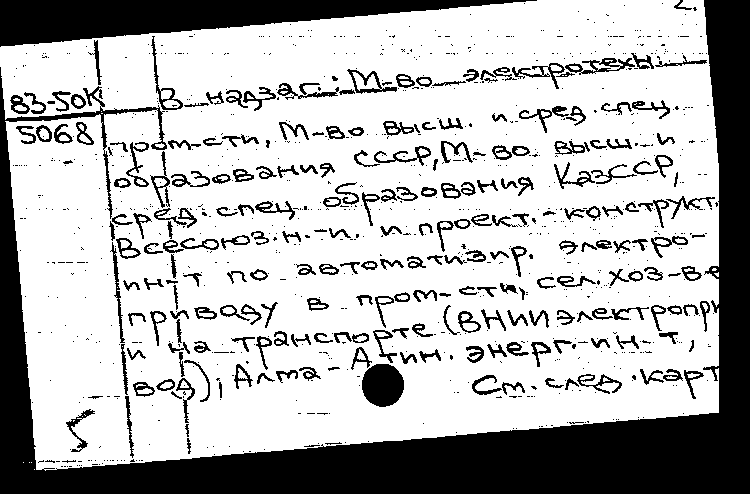 2.
83-50К
5068
В надзаг.: М-во электротехн.
пром-сти, М-во высш. и сред. спец.
образования СССР, М-во высш. и
сред. спец. образования КазССР,
Всесоюз. н.-и. и проект.-конструкт.
ин-т по автоматизир. электро-
приводу в пром-сти, сел. хоз-ве
и на транспорте (ВНИИэлектропри
вод), Алма-Атин. энерг. ин-т,
См. след. карт
5